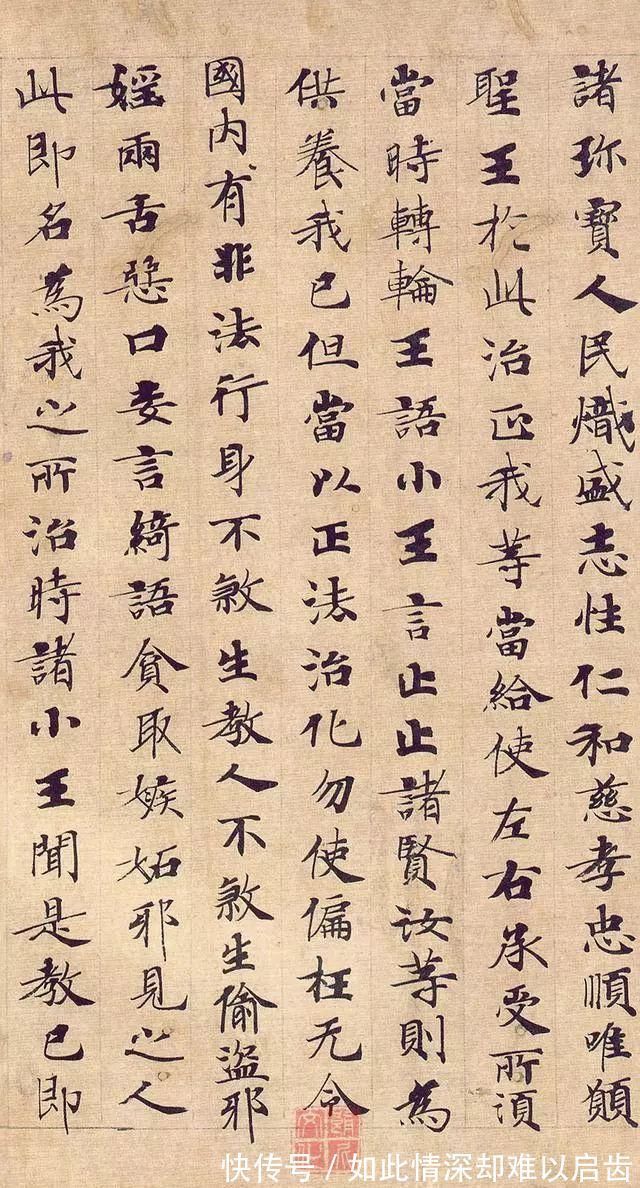 諸珎寶人民熾盛志性仁和慈孝忠順唯願
聖王於此治正我等當給使左右承受所須
當時轉輪王語小王言止止諸賢汝等則為
供養我已但當以正法治化勿使偏枉无令
國內有非法行身不煞生教人不煞生偷盜耶
婬兩舌惡口妄言綺語貪取嫉妬耶見之人
此即名為我之所治時諸小王聞是教已即
快传号 / 如此情深却难以启齿